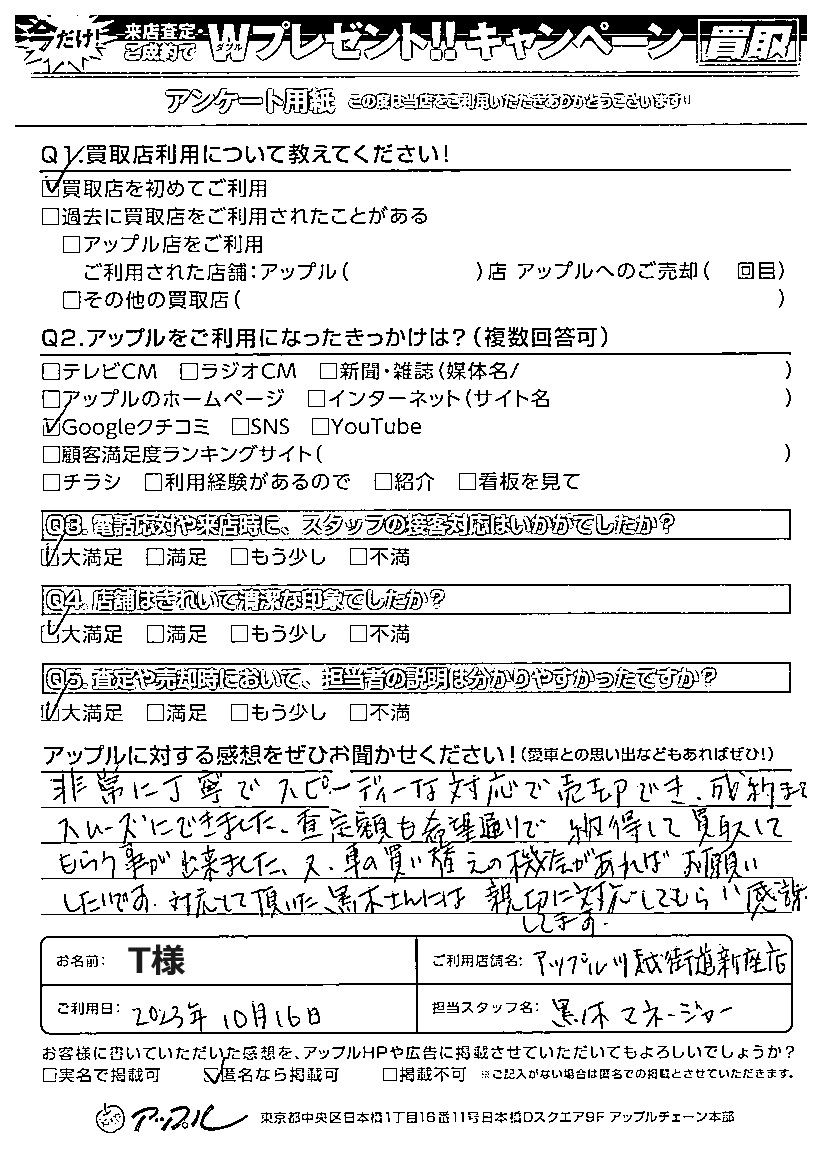 今だけ! 来店査定・ご成約で Wダブルプレゼント!! キャンペーン 買取
アンケート用紙 この度は当店をご利用いただきありがとうございます!!
Q1.買取店利用について教えてください!
☑買取店を初めてご利用
□過去に買取店をご利用されたことがある
□アップル店をご利用
ご利用された店舗:アップル( )店 アップルへのご売却( 回目)
□その他の買取店( )
Q2.アップルをご利用になったきっかけは?(複数回答可)
□テレビCM □ラジオCM □新聞・雑誌(媒体名/ )
□アップルのホームページ □インターネット(サイト名 )
☑Googleクチコミ □SNS □YouTube
□顧客満足度ランキングサイト( )
□チラシ □利用経験があるので □紹介 □看板を見て
Q3.電話応対や来店時に、スタッフの接客対応はいかがでしたか?
☑大満足 □満足 □もう少し □不満
Q4.店舗はきれいで清潔な印象でしたか?
☑大満足 □満足 □もう少し □不満
Q5.査定や売却時において、担当者の説明は分かりやすかったですか?
☑大満足 □満足 □もう少し □不満
アップルに対する感想をぜひお聞かせください!(愛車との思い出などもあればぜひ!)
非常に丁寧でスピーディーな対応で売却でき、成約まで
スムーズにできました。査定額も希望通りで 納得して買取して
もらう事が出来ました。又、車の買い替えの機会があればお願い
したいです。対応して頂いた黒木さんには 親切に対応してもらい感謝
してます。
お名前: T様 ご利用店舗名: アップル川越街道新座店
ご利用日: 2023年10月16日 担当スタッフ名: 黒木マネージャー
お客様に書いていただいた感想を、アップルHPや広告に掲載させていただいてもよろしいでしょうか?
□実名で掲載可 ☑匿名なら掲載可 □掲載不可 ※ご記入がない場合は匿名での掲載とさせていただきます。
アップル 東京都中央区日本橋1丁目16番11号日本橋Dスクエア9F アップルチェーン本部